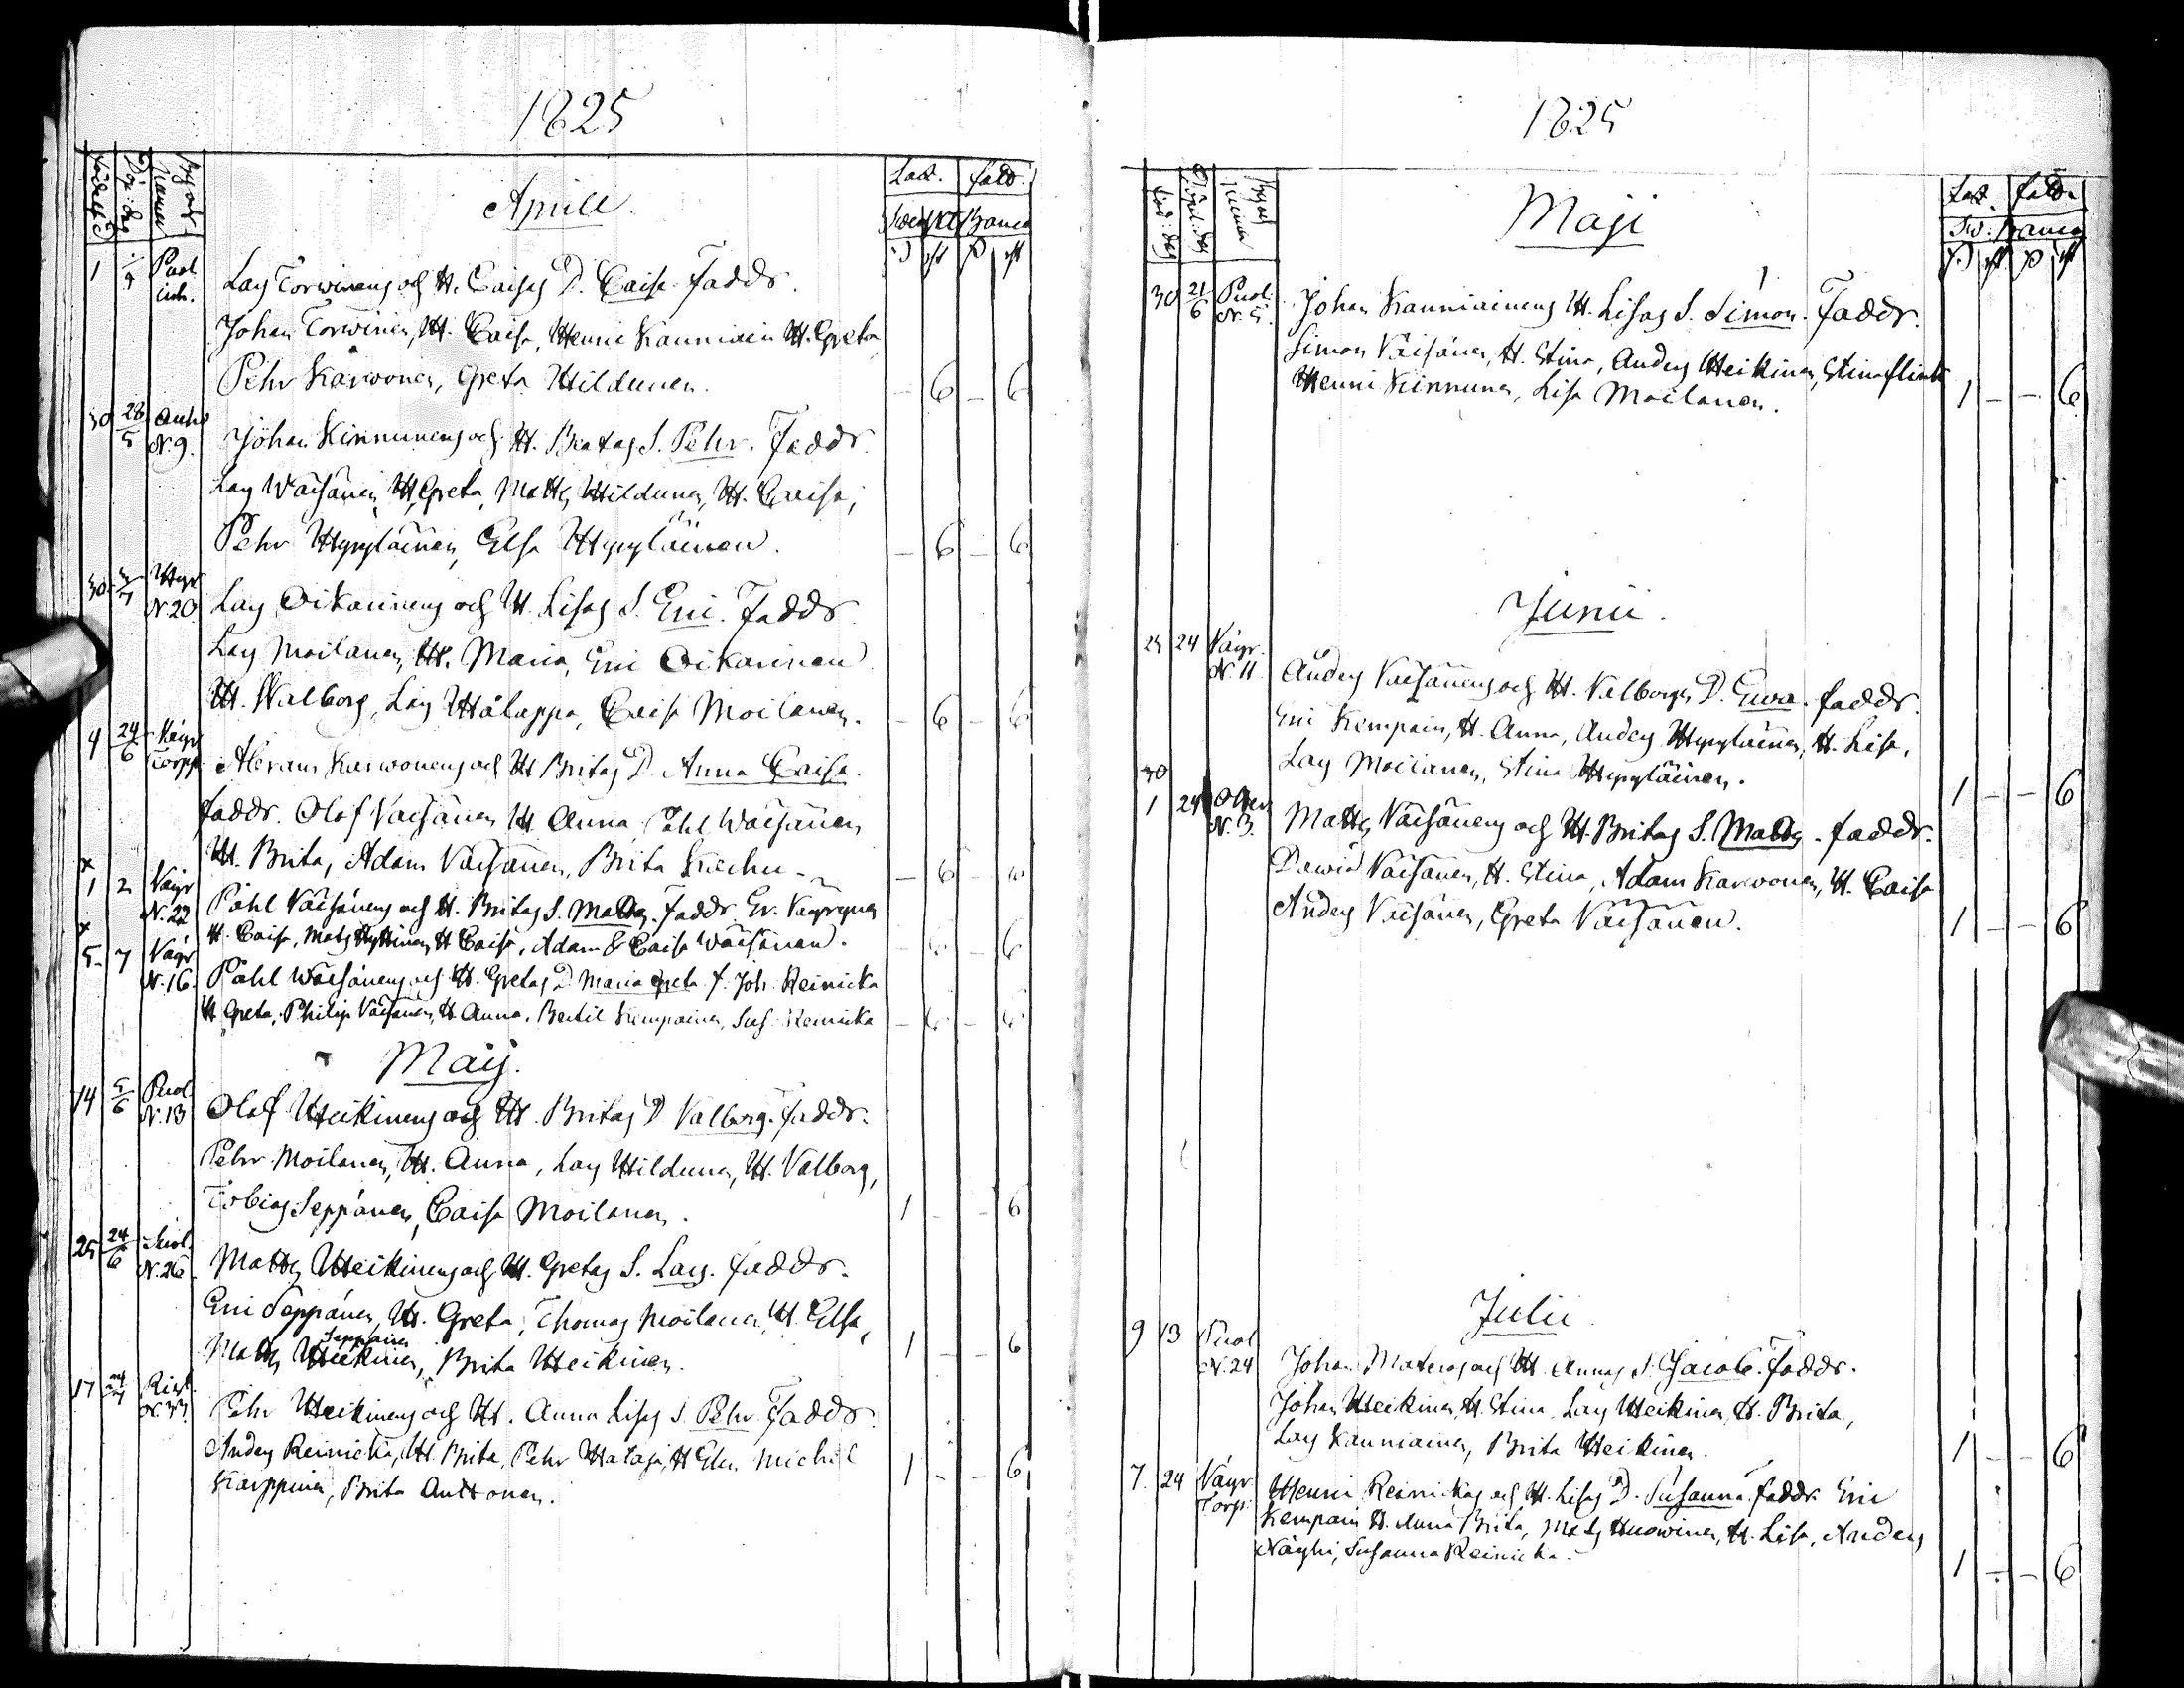 1825
Aprill.
Lars Torwinens och H. Caisas D. Caisa. Faddr.
Johan Torwinen, H. Caisa, Henric Kanniain H. Greta
Pehr Karwonen, Greta Hildunen. – 6 – 6
30 28/5 N. 9. Johan Kinnunens och H. Beatas S. Pehr. Faddr.
Lars Wäisänen, H. Greta, Matts Hildunen, H. Caisa,
Pehr Hyryläinen, Elsa Hyryläinen. – 6 – 6
30 N. 20. Lars Oikarinens och H. Lisas S. Eric. Faddr.
Lars Moilanen, H. Maria, Eric Oikarinen
H. Walborg, Lars Hålappa, Caisa Moilanen. – 6 – 6
4 24/6 Wäyr Torpp. Abram Karwonens och H. Britas D. Anna Caisa.
faddr. Olof Väisänen H. Anna Påhl Wäisänen,
H. Brita, Adam Väisänen, Brita – 6 –
x 1 2 Väyr N. 22 Påhl Väisänens och H. Britas S. Matts. Faddr. Er. Väyrynen
H. Caisa, Mats Hyttinen, H. Caisa, Adam & Caisa Wäisänen. – 6 – 6
x 5 7 Väyr N. 16. Påhl Wäisänens och H. Gretas D. Maria Greta f. Joh. Reinicka
H. Greta, Philip Väisänen, H. Anna, Bertil Kempainen, Sus. Reinicka – 6 – 6
Maij.
14 5/6 Puol. N. 13 Olof Heikinens och H. Britas D. Valborg. Faddr.
Pehr Moilanen, H. Anna, Lars Hildunen, H. Valborg,
Tobias Seppänen, Caisa Moilanen. 1 – – 6
25 24/6 N. 26. Matts Heikinens och H. Gretas S. Lars. faddr.
Eric Seppänen, H. Greta, Thomas Moilanen, H. Elsa,
Seppänen
Matts Heikinen, Brita Heikinen. 1 – – 6
17 Pehr Heikinens och H. Anna Lisas S. Pehr. Faddr.
Anders Reinicka, H. Brita, Pehr Halaja, H. Elin. Michel 1 – – 6
Karppinen, Brita Anttonen.
1825
Maji
30 21/6 Puol. N. 5. Johan Kanniainens H. Lisas S. Simon. Faddr.
Simon Väisänen, H. Stina, Anders Heikinen, Stina Flink
Henric Kinnunen, Lisa Moilanen. 1 – – 6
Junii.
24 Väyr. N. 11. Anders Väisänens och H. Valborgs D. Ewa. faddr.
Eric Kempain, H. Anna, Anders Hyryläinen, H. Lisa,
Lars Moilanen, Stina Hyryläinen. 1 – – 6
30
1 24 N. 3. Matts Väisänens och H. Britas S. Matts. faddr.
Dawid Väisänen, H. Stina, Adam Karwonen, H. Caisa
Anders Väisänen, Greta Väisänen. 1 – – 6
Julii
9 13 Puol N. 24 Johan Materos och H. Annas S. Jacob. Faddr.
Johan Heikinen, H. Stina, Lars Heikinen, H. Brita,
Lars Kanniainen, Brita Heikinen. 1 – – 6
7. 24 Väyr Torp. Henric Reinickas och H. Lisas D. Susanna. faddr. Eric
Kempain H. Anna Brita, Mats Huowinen, H. Lisa, Anders
Näyhi, Susanna Reinicka. 1 – – 6